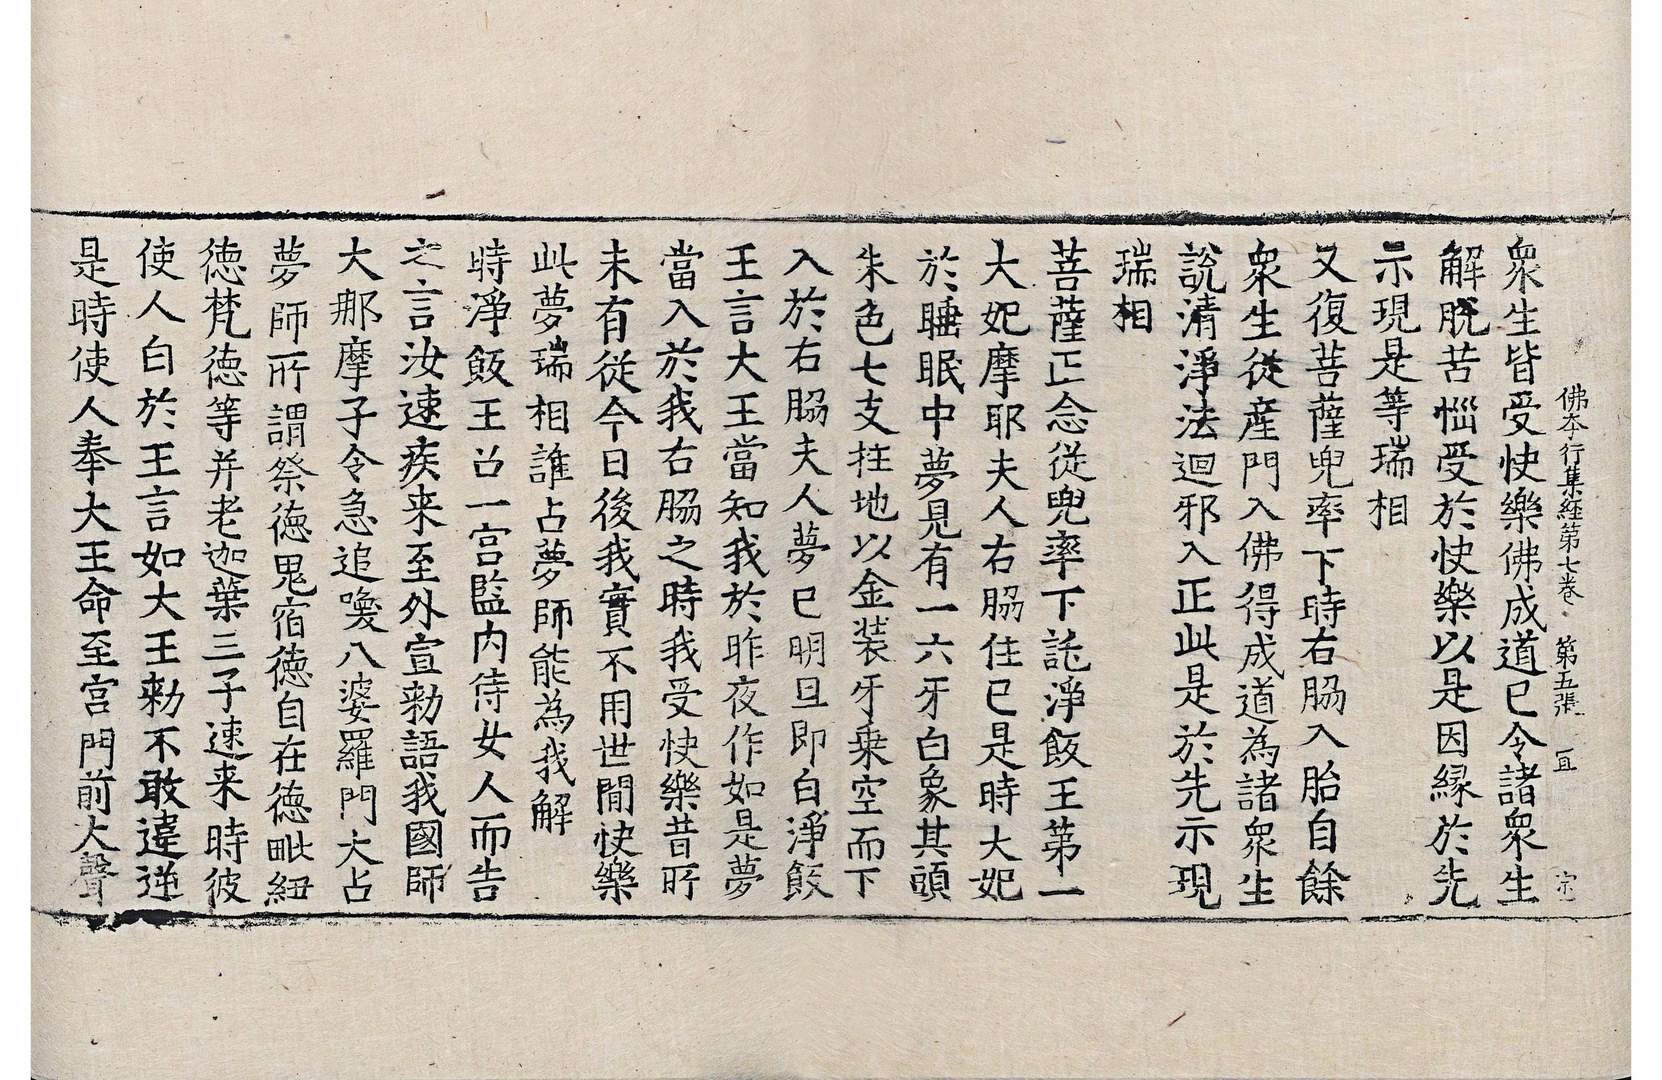 佛夲行集經第七卷 第五張 宜 宗
衆生皆受快樂佛成道已令諸衆生
解脫苦惱受於快樂以是因縁於先
示現是等瑞相
又復菩薩兜率下時右脇入胎自餘
衆生從産門入佛得成道為諸衆生
說清淨法迴邪入正此是於先示現
瑞相
菩薩正念從兜率下託淨飯王第一
大妃摩耶夫人右脇住已是時大妃
於睡眠中夢見有一六牙白象其頭
朱色七支柱地以金装牙乗空而下
入於右脇夫人夢已明旦即白淨飯
王言大王當知我於昨夜作如是夢
當入於我右脇之時我受快樂昔所
未有従今日後我實不用世間快樂
此夢瑞相誰占夢師能為我解
時淨飯王召一宫監内侍女人而告
之言汝速疾来至外宣勑語我國師
大那摩子令急追喚八婆羅門大占
夢師所謂祭徳鬼宿徳自在徳毗紐
徳梵徳等并老迦葉三子速来時彼
使人白於王言如大王勑不敢違逆
是時使人奉大王命至宫門前大聲